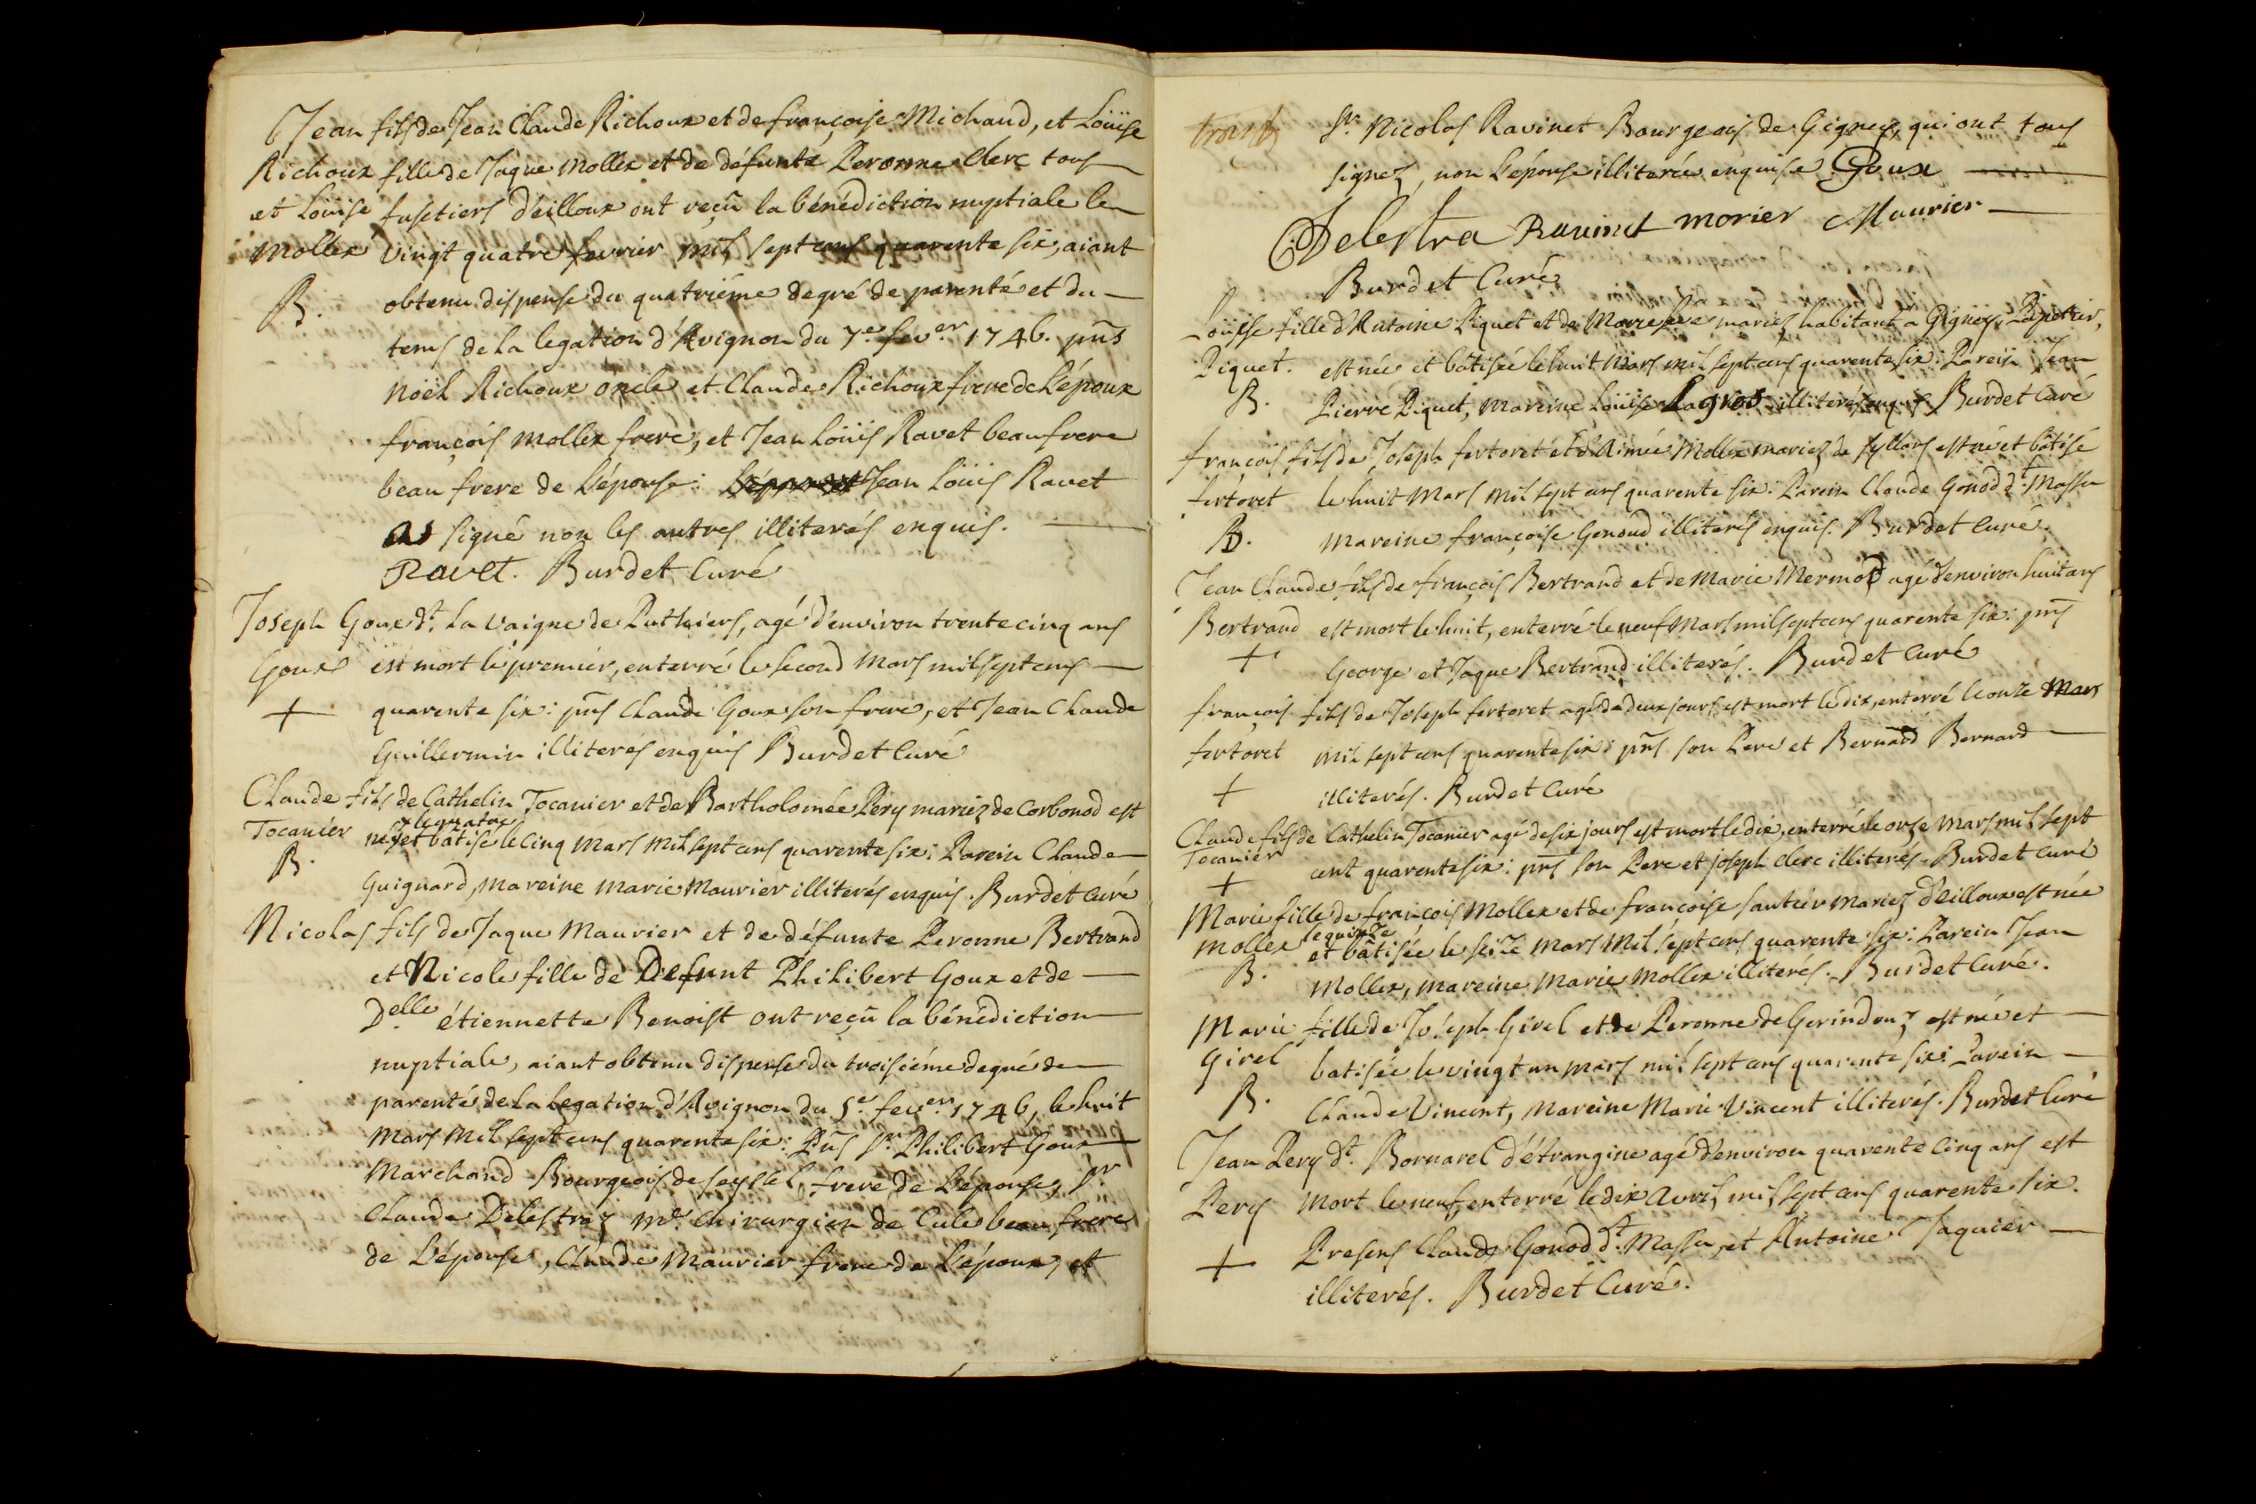 Jean fils de Jean Claude Richoux et de françoise Michaud, et Loüise
Richoux fille de Jaque Mollex et de défunte Peronne Clerc tous
et Loüise fusetiers d'eilloux ont reçû la bénédiction nuptiale le
Mollex vingt quatre fevrier mil sept cens quarente six, aiant
B. obtenu dispense du quatriéme degré de parenté et du
tems de la legation d'Avignon du 7.e fev.er 1746. pñs
Noël Richoux oncle et Claude Richoux frere de L'époux
françois Mollex frere, et Jean Loüis Ravet beaufrere
beau frere de L'épouse: Jean Loüis Ravet
as signé non les autres illiterés enquis.
Ravet. Burdet Curé
Joseph Goux d.t La Vaigne de Puthiers, agé d'environ trente cinq ans
Goux est mort le premier, enterré le second Mars mil sept cens
+ quarente six: pñs Claude Goux son frere, et Jean Claude
Guillermin illiterés enquis Burdet Curé
Claude fils de Cathelin Tocanier et de Bartholomée Pery mariez de Corbonod est
Tocanier né le quatre et bâtisé le cinq Mars mil sept cens quarente six: Parein Claude
B. Guignard, Mareine Marie Maurier illiterés enquis. Burdet Curé
Nicolas fils de Jaque Maurier et de défunte Peronne Bertrand
et Nicole fille de Defunt Philibert Goux et de
D.elle étiennette Benoist ont reçû la bénédiction
nuptiale, aiant obtenu dispense du troisiéme degré de
parenté de la Legation d'Avignon du 5.e fev.er 1746, le huit
Mars Mil sept cens quarente six: Pñs S.r Philibert Goux
Marchand Bourgeois de Seyssel, frere de L'épouse, S.r
Claude Delestraz M.e Chirurgien de Cule beau frere
de L'épouse, Claude Maurier frere de L'époux, et
S.r Nicolas Ravinet Bourgeois de Gignez, qui ont tous
signez, non L'épouse illiterée enquise Goux
Delestra Ravinet morier Maurier
Burdet Curé
Loüise fille d'Antoine Piquet et de Marie mariez habitant a Gignez,
Piquet. est née et bâtisée le huit Mars mil sept cens quarente six: Parein Jean
B. Pierre Piquet, Mareine Loüise Lagros illiterés enquis Burdet Curé
françois fils de Joseph fertoret et d'Aimée Mollex mariez de Syllans est né et bâtisé
fertoret le huit Mars mil sept cens quarente six: Parein Claude Gonod d.t Massu
B. Mareine françoise Genoud illiterés enquis. Burdet Curé.
Jean Claude fils de françois Bertrand et de Marie Mermod agé d'environ huit ans
Bertrand est mort le huit, enterré le neuf Mars mil sept cens quarente six: pñs
+ George et Jaque Bertrand illiterés. Burdet Curé
françois fils de Joseph fertoret agé de deux jours est mort le dix, enterré le onze Mars
fertoret mil sept cens quarente six: pñs son Pere et Bernard Bernard
+ illiterés. Burdet Curé
Claude fils de Cathelin Tocanier agé de six jours est mort le dix, enterré le onze Mars mil sept
Tocanier cent quarente six: pñs son Pere et joseph Clerc illiterés. Burdet Curé
+
Marie fille de françois Mollex et de françoise Sautier mariez d'eilloux est née
Mollex le quinze et bâtisée le seize Mars Mil sept cens quarente six: Parein Jean
B. Mollex, Mareine Marie Mollex illiterés. Burdet Curé.
Marie fille de Joseph Girel et de Peronne de Gerindouz est née et
Girel batisée le vingt un Mars mil sept cens quarente six: Parein
B. Claude Vincent, Mareine Marie Vincent illiterés. Burdet Curé
Jean Pery d.t Bornarel d'étrangine agé d'environ quarente cinq ans est
Pery Mort le neuf, enterré le dix Avril mil sept cens quarente six.
+ Presens Claude Gonod d.t Massu, et Antoine Jaquier
illiterés. Burdet Curé.